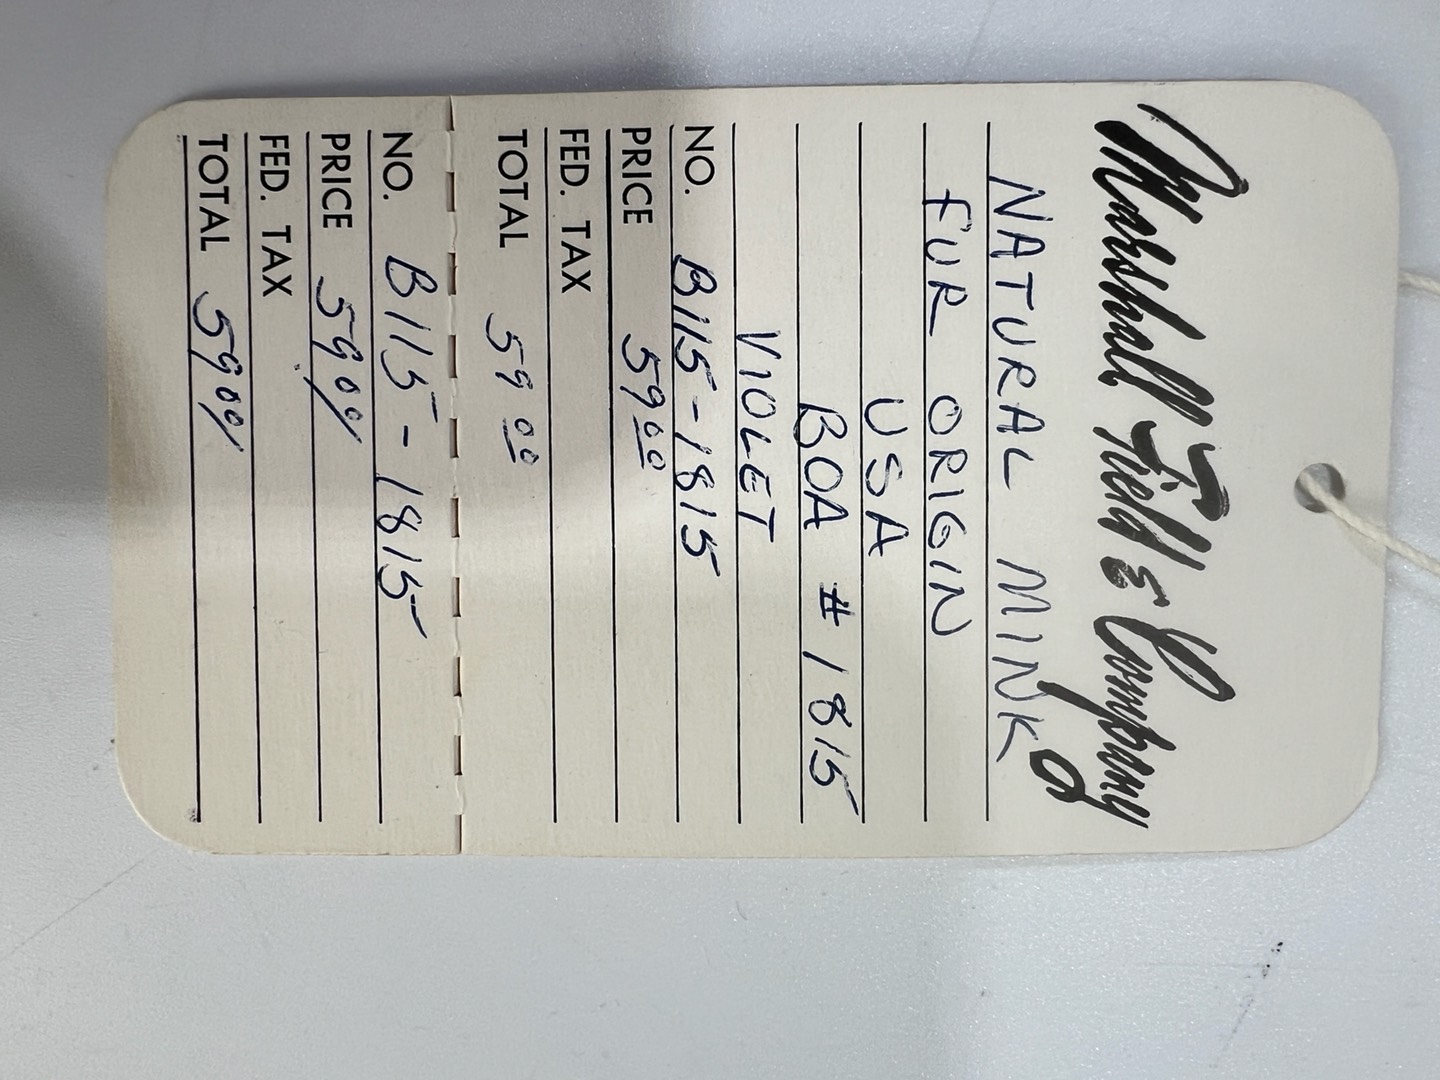 Marshall Field & Company
NATURAL MINK
FUR ORIGIN
USA
BOA # 1815
VIOLET
NO. B115-1815
PRICE 59.00
FED. TAX
TOTAL 59 00
NO. B115-1815
PRICE 59 00/
FED. TAX
TOTAL 59 00/